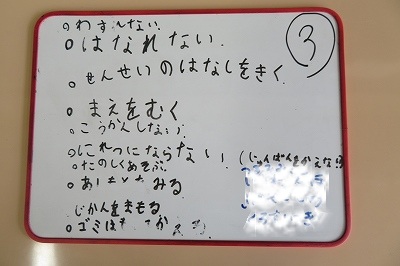 ③
○わすれない
○はなれない
○せんせいのはなしをきく
○まえをむく
○こうかんしない
○にれつにならない (じゅんばんをかえない)
○たのしくあそぶ
○みる
じかんをまもる
○ゴミは